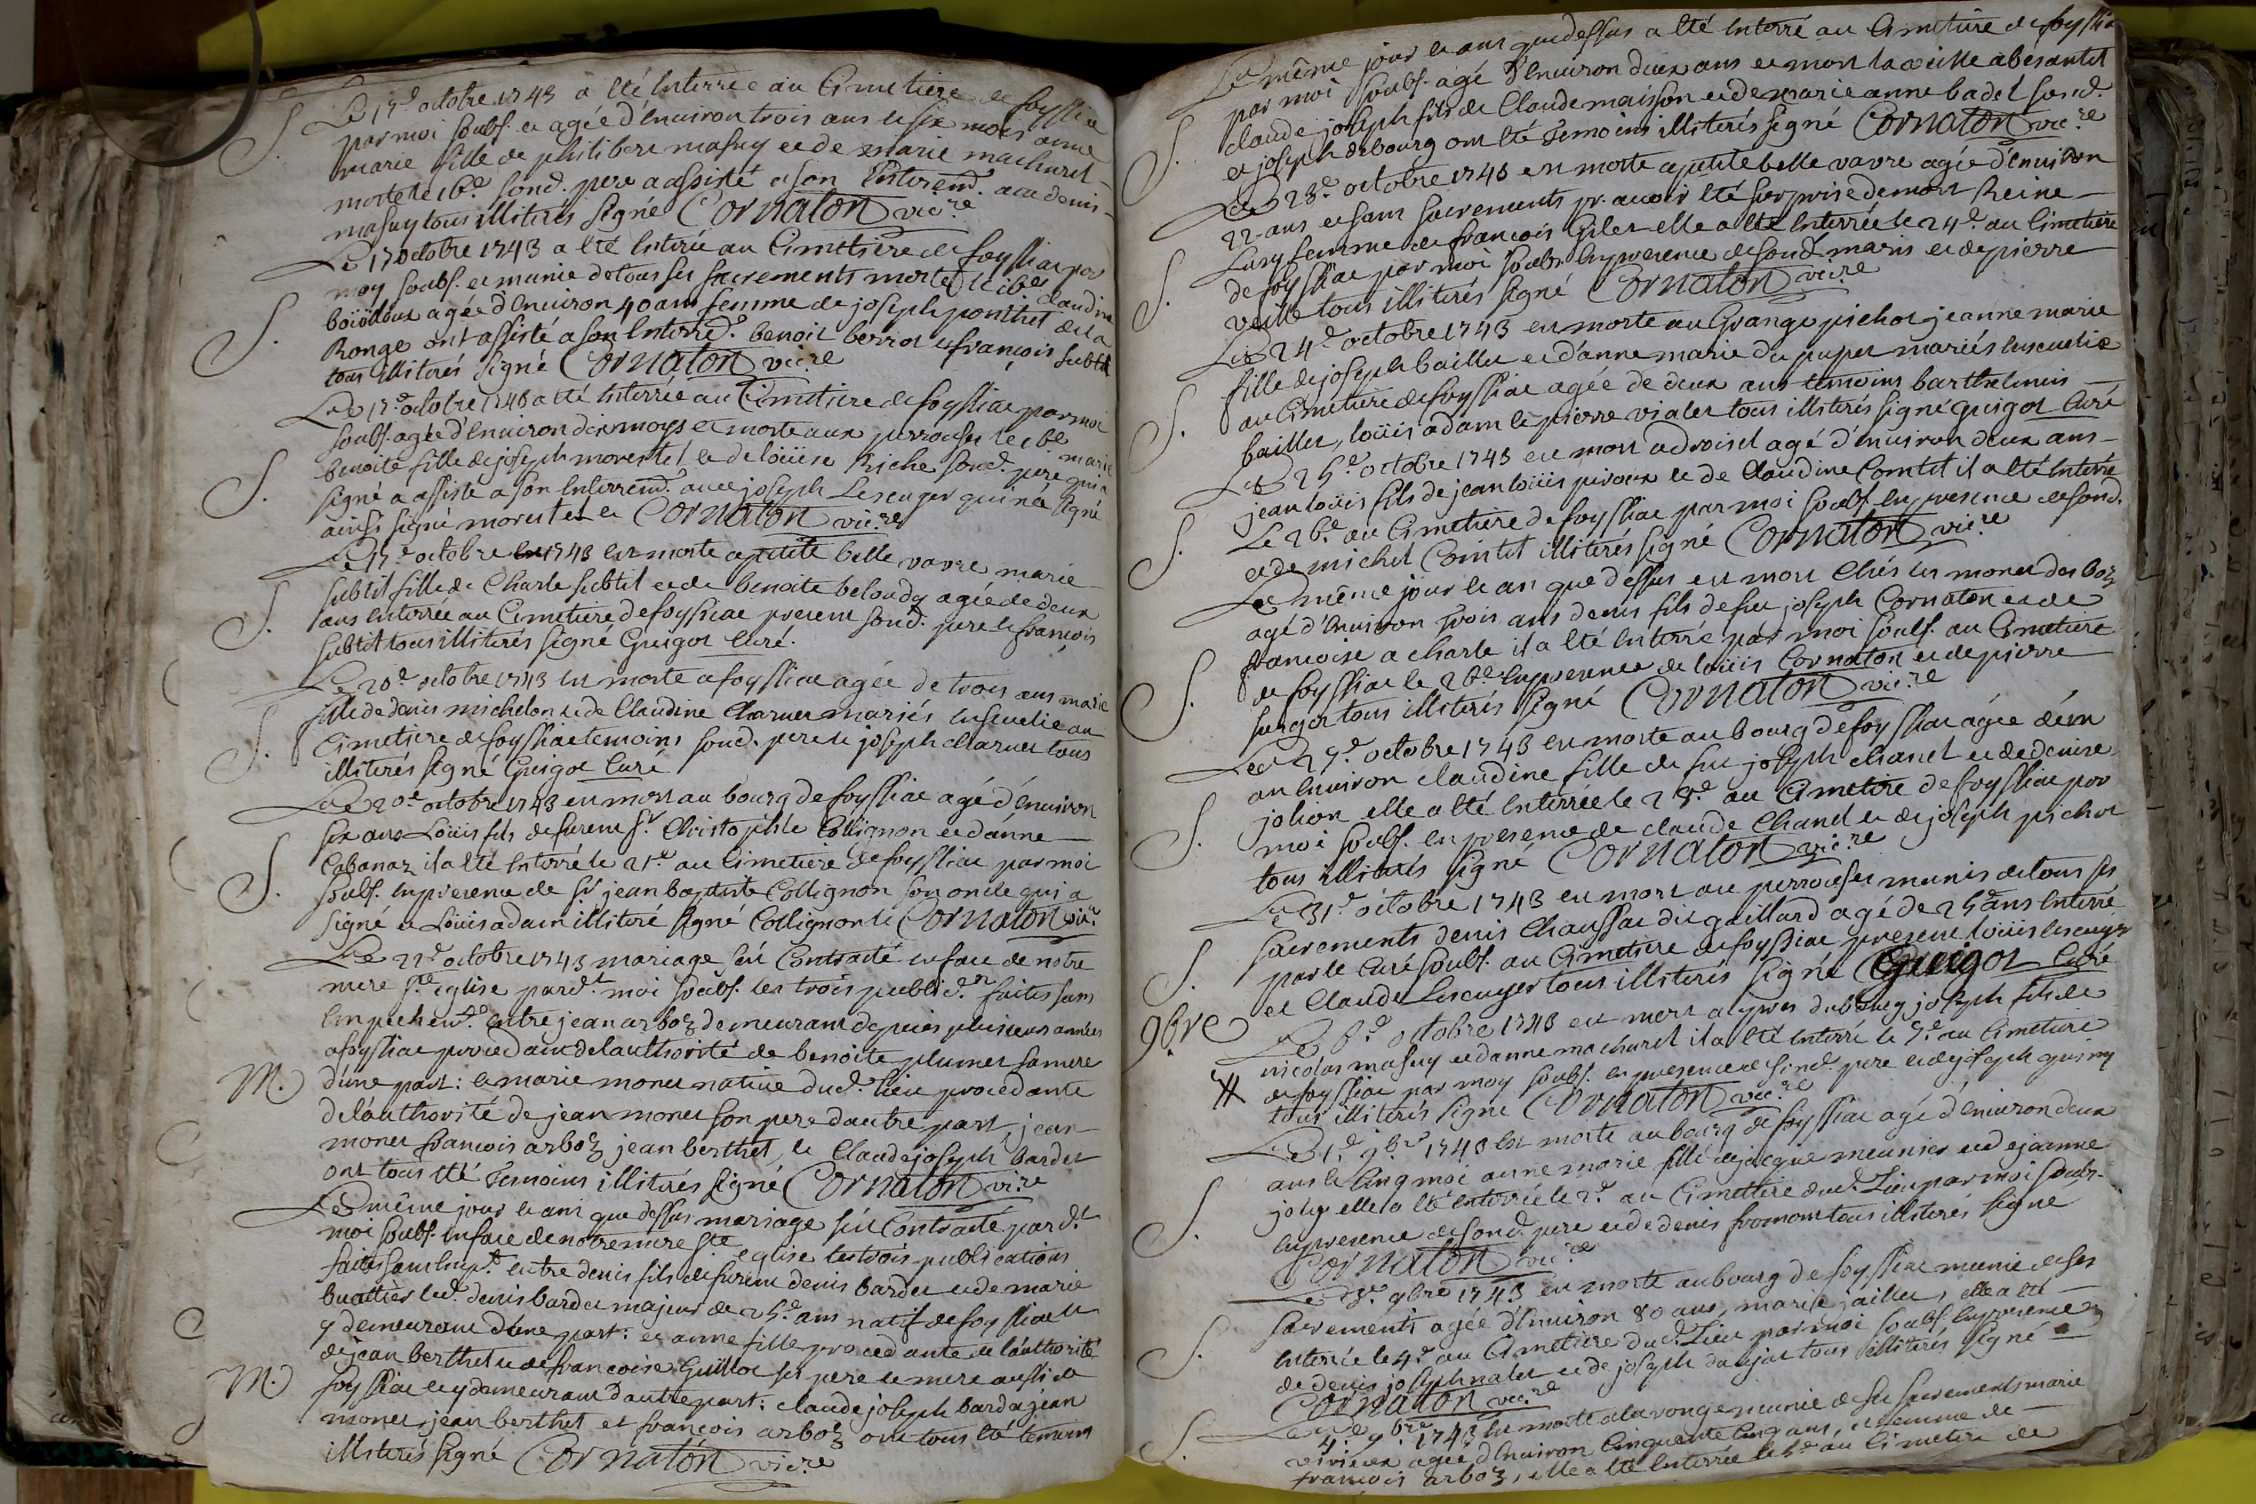 S. Le 17.e octobre 1743 a été Enterrée au Cimetiere de foyssia
par moi soubs. et agée d'environ trois ans et six mois anne
marie fille de philibert masuy et de marie machuret
morte le 16.e sond. pere a assisté a son Enterremd. avec denis
masuy tous illiterés signé Cornaton vic.re
Le 17 octobre 1743 a été Enterrée au Cimetiere de foyssiac par
moy soubs. et munie de tous ses sacrements morte le 16.e claudine
agée d'environ 40 ans femme de joseph ponthet de la
S. Ronge ont assisté a son Enterred. benoit berrot et françois subtil
tous illiterés signé Cornaton vic.re
Le 17.e octobre 1743 a été Enterrée au Cimetiere de foyssiac par moi
soubs. agée d'environ dix moys et morte aux perrouses le 16.e marie
S. benoite fille de joseph morestel et de loüise Riche sond. pere qui a
signé a assisté a son Enterremd. avec joseph Lescuyer qui n'a signé
ainsi signé morestel et Cornaton vic.re
Le 17.e octobre 1743 est morte a petite belle vavre marie
S. subtil fille de Charle subtil et de benoite beloudy agée de deux
ans Enterrée au Cimetiere de foyssiac present sond. pere et françois
subtil tous illiterés signé Guigot Curé.
Le 20.e octobre 1743 est morte a foyssiac agée de trois ans marie
S. fille de denis michelon et de Claudine Charnet mariés Ensevelie au
Cimetiere de foyssiac temoins sond. pere et joseph charnet tous
illiterés signé Guigot Curé
Le 20.e octobre 1743 est mort au bourg de foyssiac agé d'Environ
six ans Loüis fils de furent s.r Christophle Collignon et d'anne
S. Cabanaz il a été Enterré le 21.e au Cimetiere de foyssiac par moi
soubs. En presence de s.r jean baptiste Collignon son oncle qui a
signé et Loüis adam illiteré signé Collignon et Cornaton vic.re
Le 22.e octobre 1743 mariage fut Contracté en face de notre
mere s.te eglise pard.t moi soubs. les trois public.on faites sans
Empechemd. Entre jean arboz demeurant depuis plusieurs années
a foyssiac procedant de l'authorité de benoite plumet sa mere
M. d'une part: et marie monet native dud. lieu procedante
de l'authorité de jean monet son pere d'autre part, jean
monet francois arboz jean berthet, et Claude joseph bardet
ont tous été Temoins illiterés signé Cornaton vi.re
Le même jour et an que dessus mariage fut Contracté par d.t
moi soubs. En face de notre mere S.te eglise les trois publications
faites sans Emp.t entre denis fils de furent denis bardet et de marie
led. denis bardet majeur de 25.e ans natif de foyssiac et
y demeurant d'une part: et anne fille procedante de l'authorité
de jean berthet et de francoise Guillot ses pere et mere aussi de
M. foyssiac et y demeurant d'autre part: claude joseph bardet jean
monet jean berthet et françois arboz ont tous été temoins
illiterés signé Cornaton vic.re
Le même jour et ans que dessus a été Enterré au Cimetiere de foyssia
par moi soubs. agé d'Environ deux ans et mort la veille a bésantet
S. claude joseph fils de Claude maisson et de marie anne badel sond.
et joseph debourg ont été Temoins illiterés signé Cornaton vic.re
Le 23.e octobre 1743 est morte a petite belle vavre agée d'Environ
22 ans et sans sacrements pr. avoir été surprise de mort Reine
S. Lury femme de francois Giler elle a été Enterrée le 24.e au Cimetiere
de foyssiac par moi soubs. En presence de sond. maris et de pierre
veille tous illiterés signé Cornaton vic.re
Le 24.e octobre 1743 est morte au Grange pichot jeanne marie
fille de joseph baillet et d'anne marie du puper mariés Ensevelie
S. au Cimetiere de foyssiac agée de deux ans temoins barthelemis
baillet, loüis adam et pierre vialet tous illiterés signé guigot Curé
Le 25.e octobre 1743 est mort a droiset agé d'environ deux ans
jean loüis fils de jean loüis piroux et de Claudine Comtet il a été Enterré
S. Le 26.e au Cimetiere de foyssiac par moi soubs. En presence de sond.
et de michel Comtet illiterés signé Cornaton vic.re
Le même jour et an que dessus est mort Chés les monet des boz
agé d'Environ trois ans denis fils de feu joseph Cornaton et de
francoise a charle il a été Enterré par moi soubs. au Cimetiere
S. de foyssiac le 26.e En presence de loüis Cornaton et de pierre
surgot tous illiterés signé Cornaton vic.re
Le 27.e octobre 1743 est morte au bourg de foyssiac agée d'un
an Environ claudine fille de feu joseph chanel et de denise
S. jolion elle a été Enterrée le 28.e au Cimetiere de foyssiac par
moi soubs. En presence de claude Chanel et de joseph pichot
tous illiterés signé Cornaton vic.re
Le 31.e octobre 1743 est mort au perrouses munis de tous ses
sacrements denis Chaussac dit gaillard agé de 25 ans Enterré
S. par le Curé soubs. au Cimetiere de foyssiac present loüis lescuyer
et Claude Lescuyer tous illiterés signé Guigot Curé
9bre Le 8.e octobre 1743 est mort joseph fils de
nicolas masuy et d'anne macharet il a été Enterré le 9.e au Cimetiere
# de foyssiac par moy soubs. En presence de sond. pere et de joseph guiny
tous illiterés signé Cornaton vic.re
Le 1.e 9.bre 1743 est morte au bourg de foyssiac agé d'Environ deux
ans et Cinq moi anne marie fille de jacque meunier et de jeanne
S. joly elle a été Enterrée le 2.e au Cimetiere dud. Lieu par moi soubs.
En presence de sond. pere et de denis fromont tous illiterés signé
Cornaton vic.re
Le 3.e 9bre 1743 est morte au bourg de foyssiac munie de ses
sacrements agée d'Environ 80 ans, marie jaillet, elle a été
S. Enterrée le 4.e au Cimetiere dud. Lieu par moi soubs. En presence
de denis joseph nalet et de joseph danjat tous illiterés signé
Cornaton vic.re
Le 4.e 9.bre 1743 est morte a la ronge munie de ses sacrements marie
S. vivieux agée d'Environ Cinquante Cinq ans, et femme de
francois arboz, elle a été Enterrée le 5.e au Cimetiere de